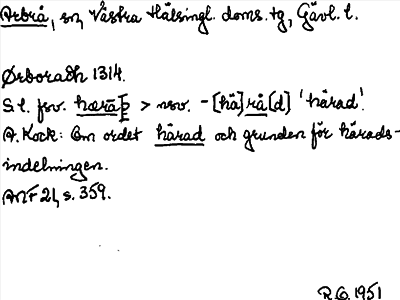 Arbrå, sn, Västra Hälsingl. doms. tg, Gävl. l.
Ørboradh 1314.
S. l. fsv. hæraþ > nsv. -[hä]rå[d] 'härad'.
A. Kock: Om ordet härad och grunden för härads-
indelningen.
ANF 21, s. 359.
R.G. 1951